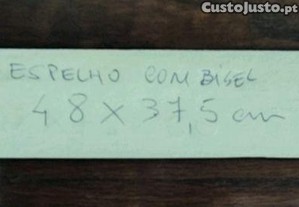 CustoJusto.pt
ESPELHO COM BISEL
48 X 37,5 cm